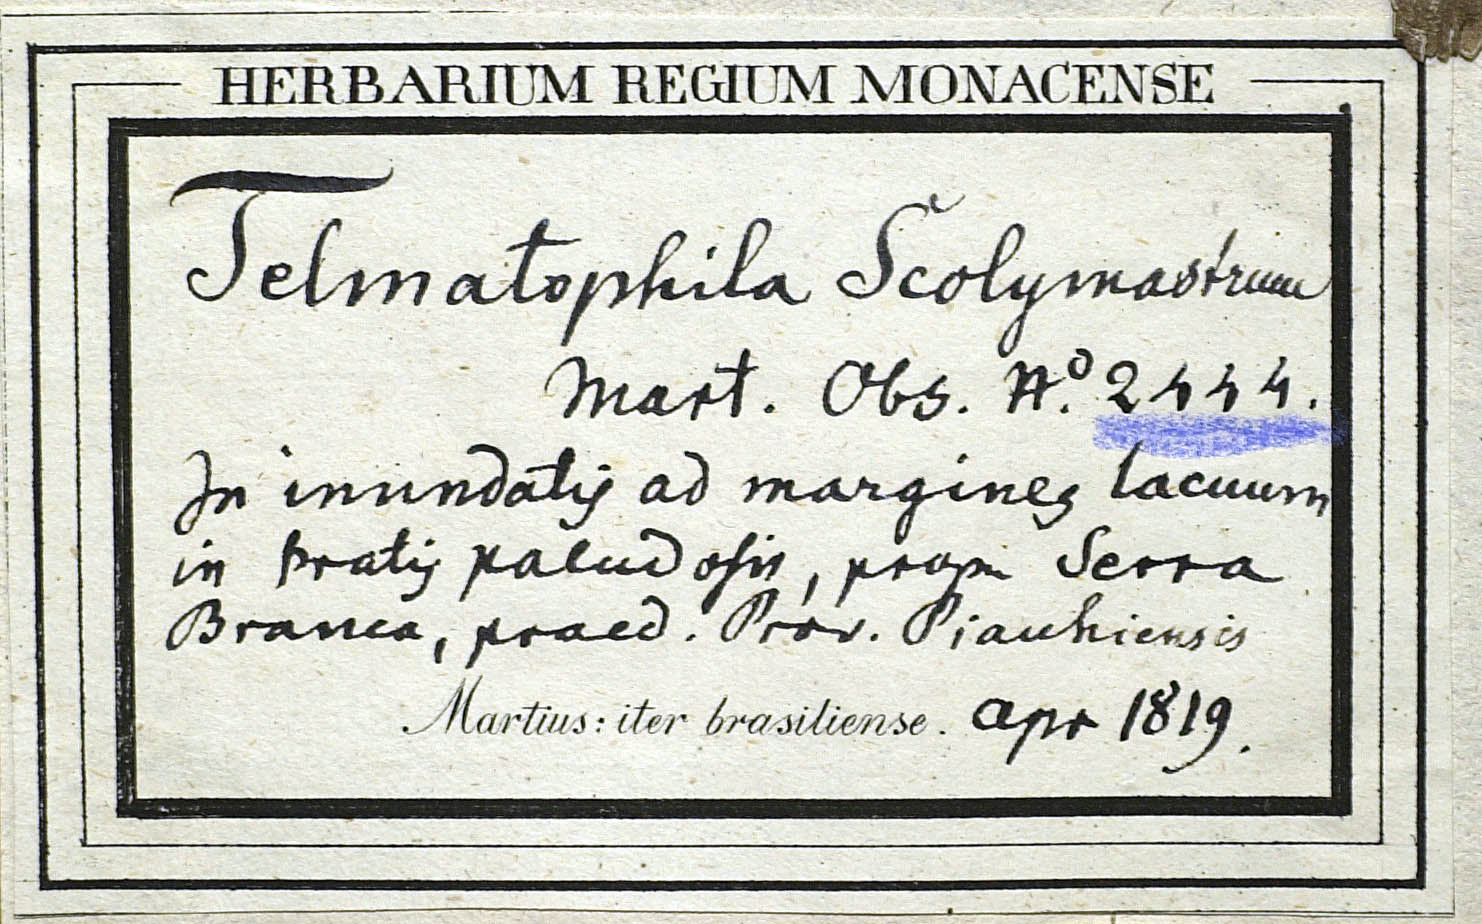 HERBARIUM REGIUM MONACENSE
Telmatophila Scolymastrum
Mart. Obs. No. 2444.
In inundatis ad margines lacuum
in pratis paludosis, prope Serra
Branca, praed. Prov. Piauhiensis
Martius: iter brasiliense. Apr 1819.